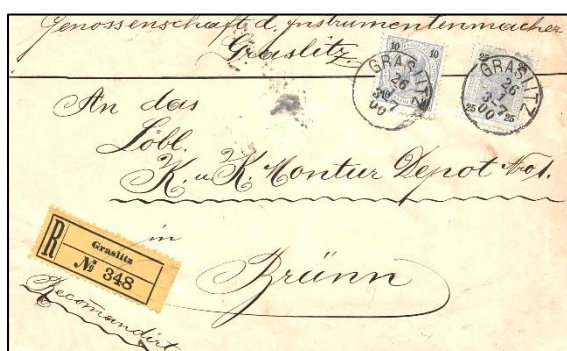 Genossenschaft d. Instrumentenmacher
Graslitz.
10 10
GRASLITZ
26
1
3-7
00
25 25
GRASLITZ
26
1
3-7
00
25 25
An das
Löbl.
K. u. K. Montur Depot No 1.
in
Brünn
R
Graslitz
№ 348
Recomandirt